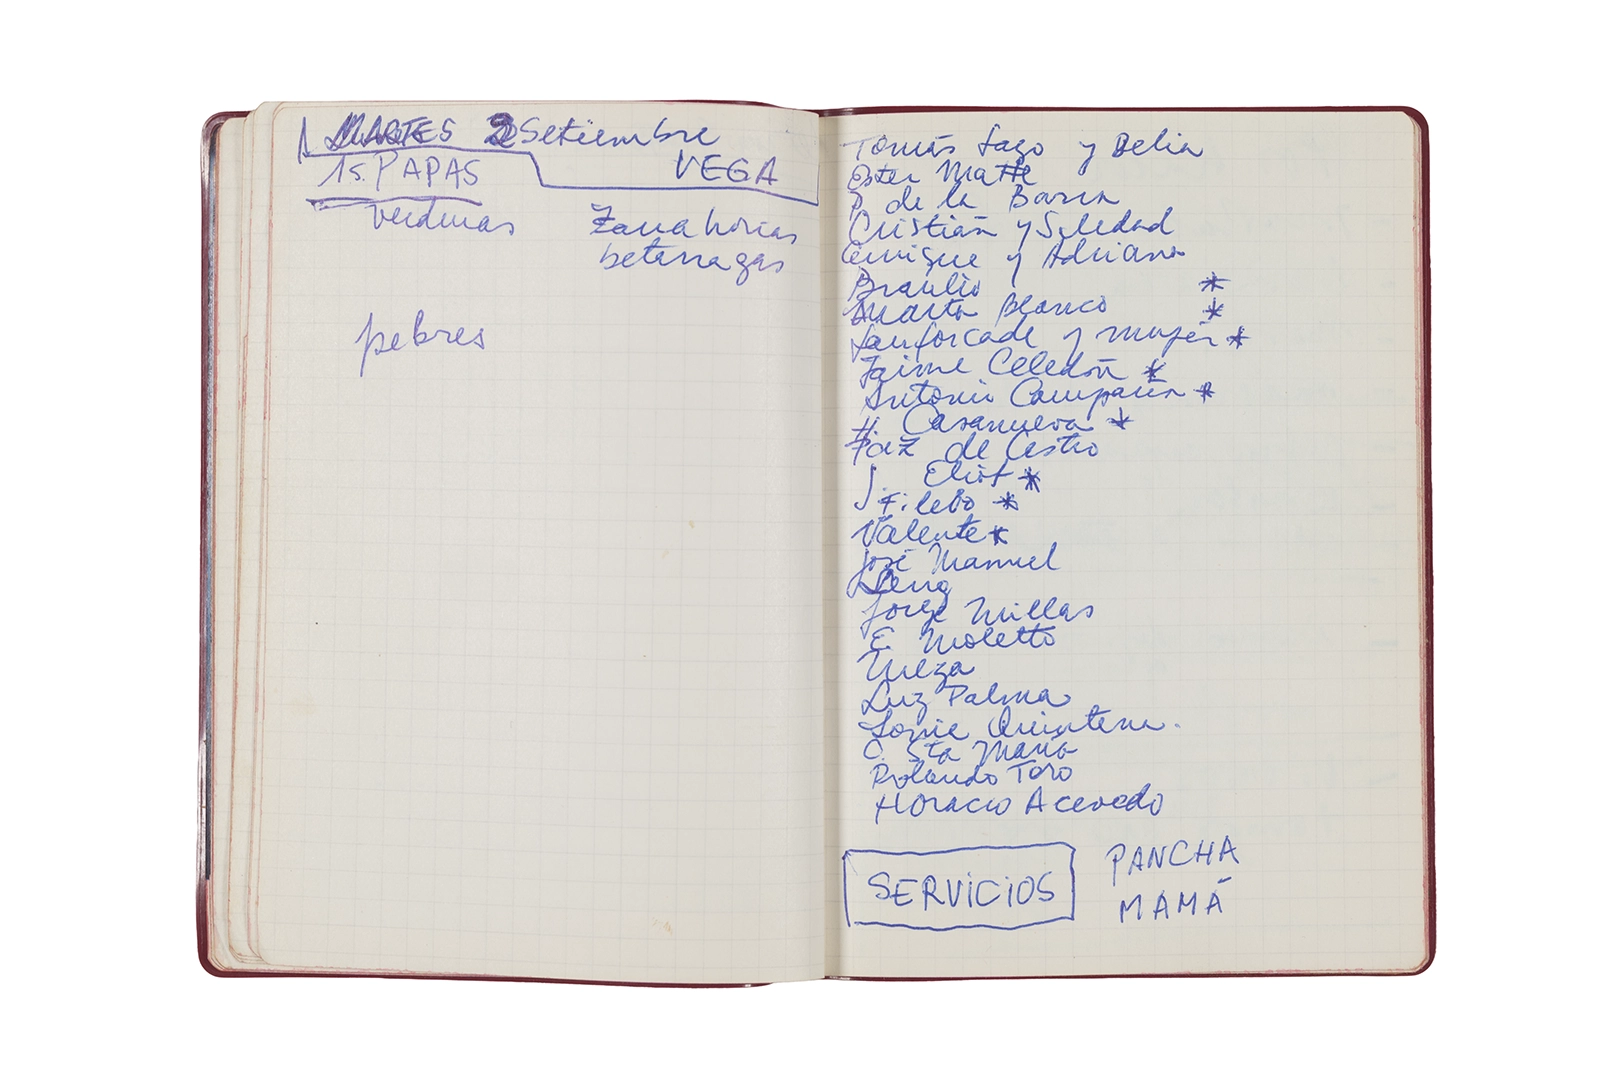 MARTES 2 Setiembre
VEGA
15. PAPAS
verduras
Zanahorias
betarragas
pebres
Tomás Lago y Delia
Ester Matte
P. de la Barra
Cristián y Soledad
Enrique y Adriana
Braulio *
Marta Blanco *
y mujer *
Jaime Celedón *
Antonio *
H. Casanueva *
Paz de Castro
J. Eliot *
Filebo *
Valente *
José Manuel
Leng
Jorge Millas
E. Moletto
Meza
Luz Palma
Sonie Quintana.
C. Sta María
Rolando Toro
Horacio Acevedo
SERVICIOS
PANCHA
MAMÁ